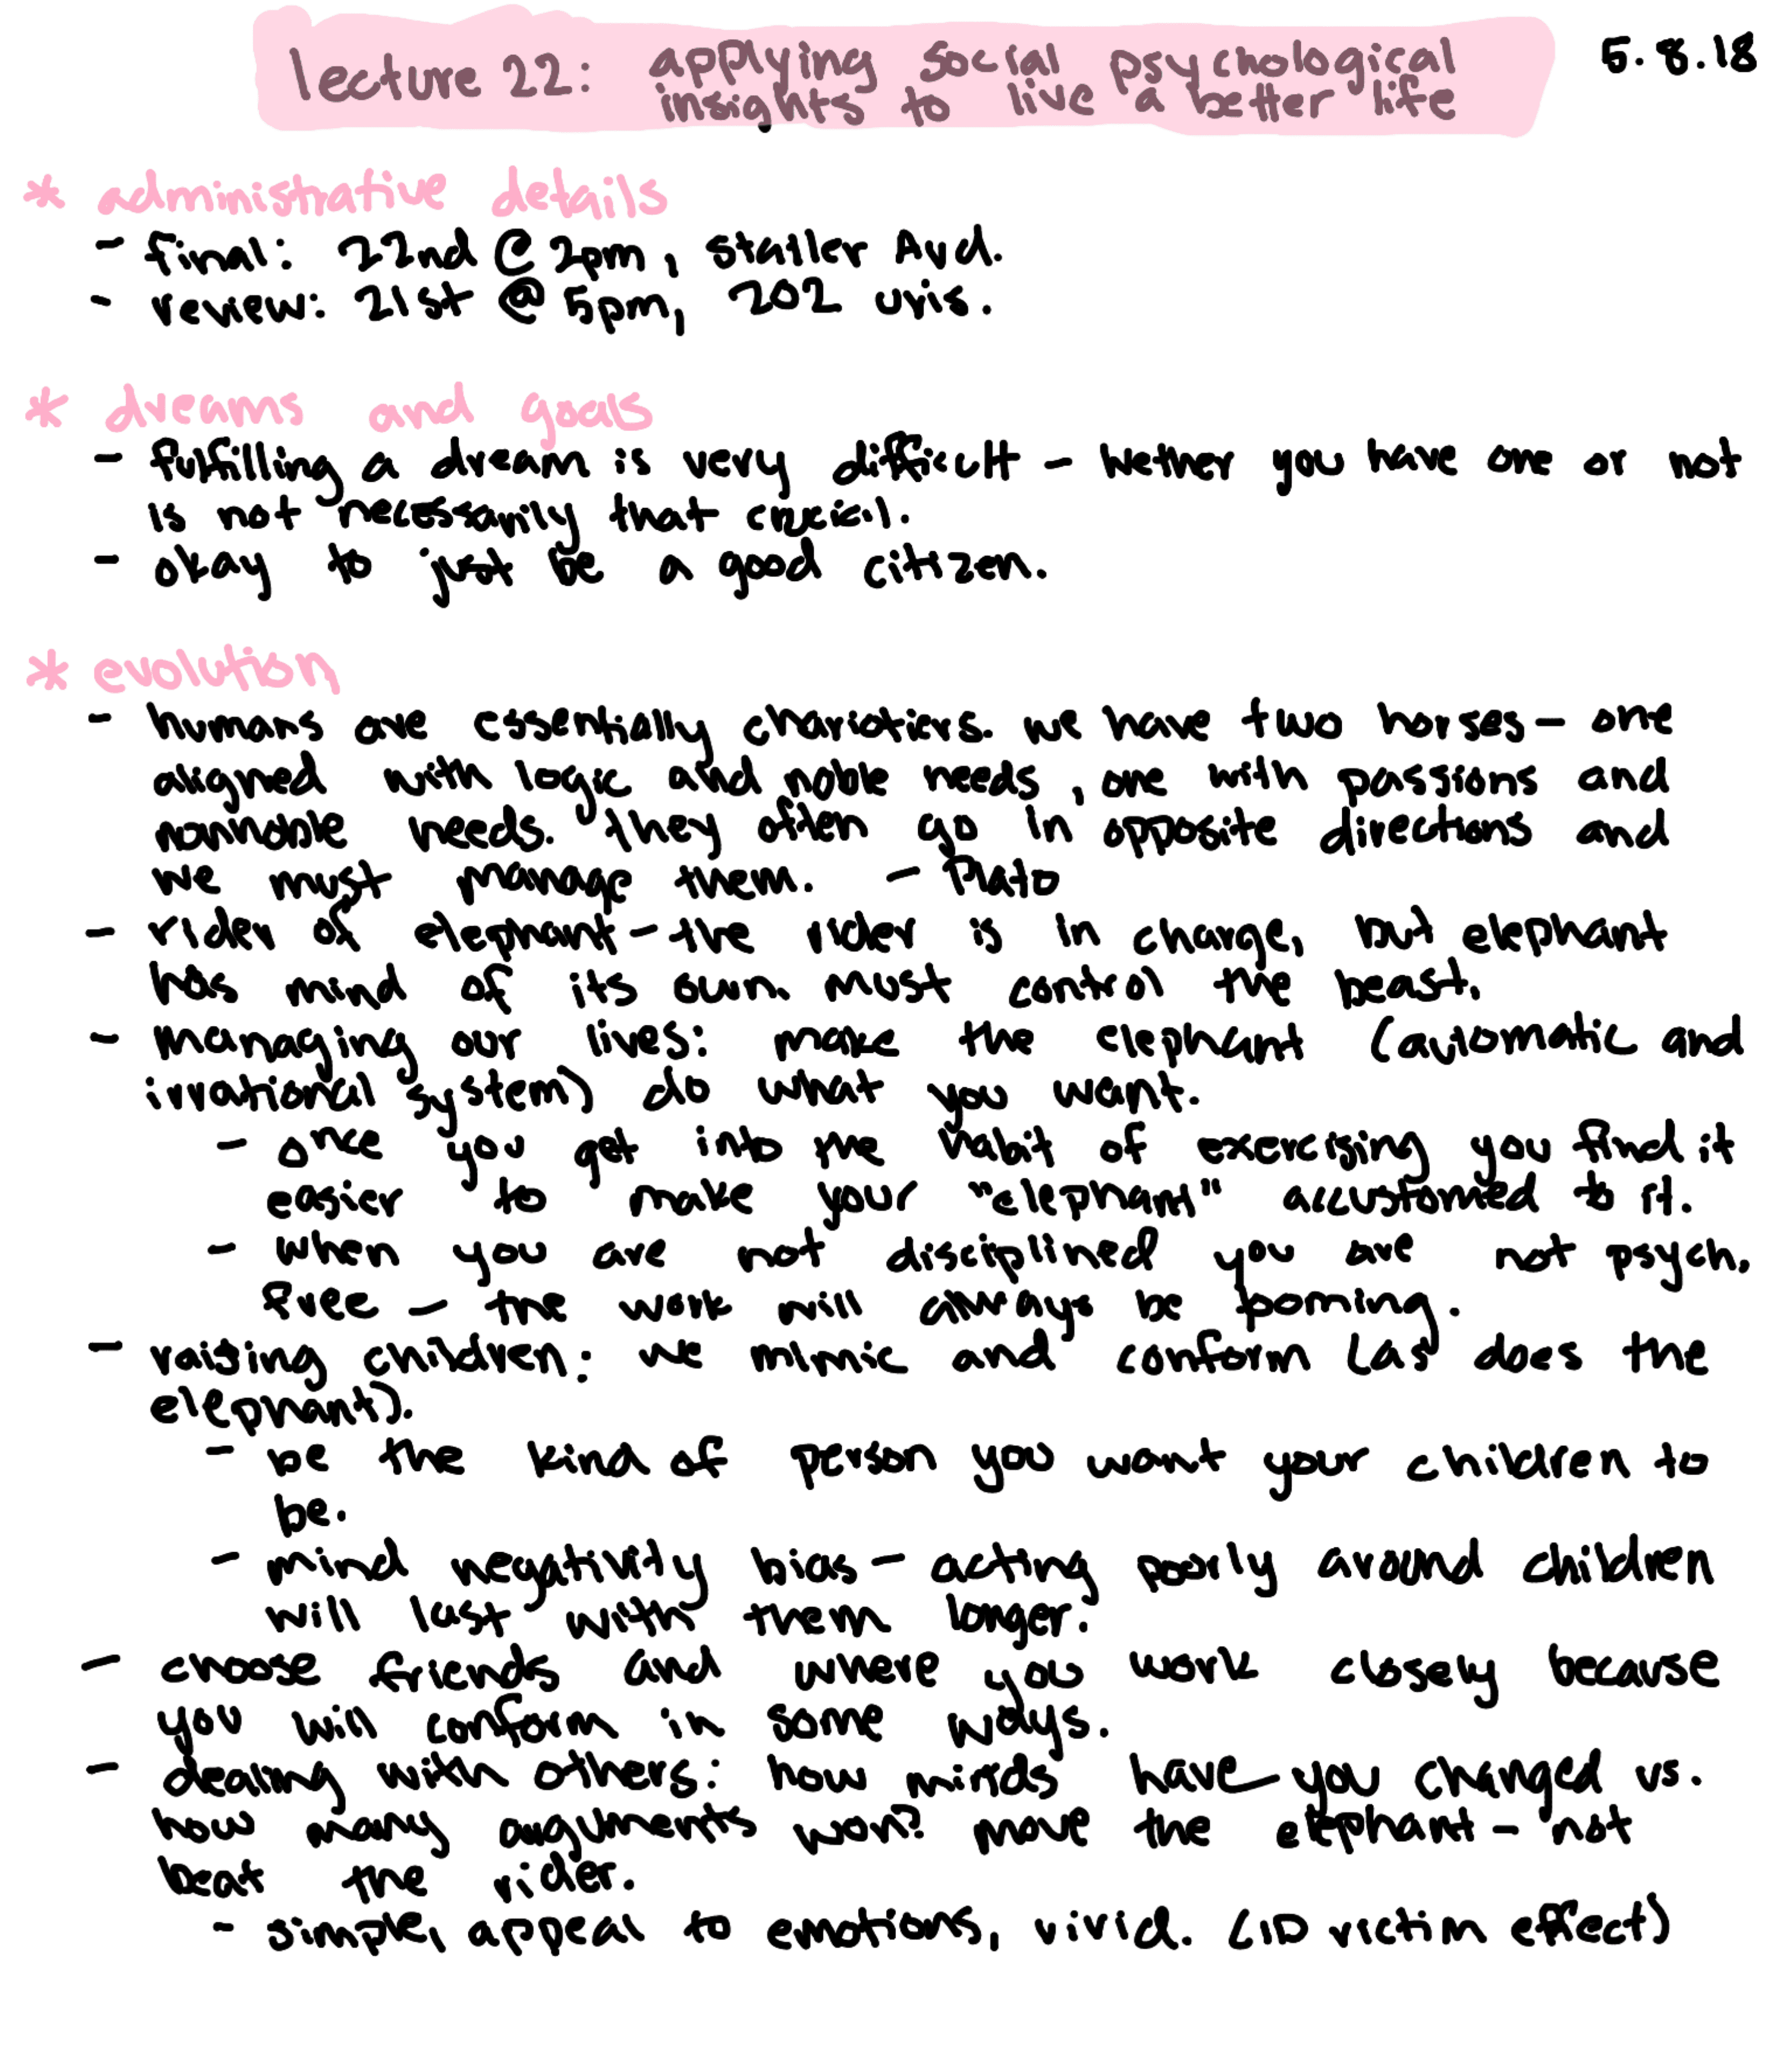 lecture 22: applying social psychological
insights to live a better life
5.8.18
* administrative details
- final: 22nd @ 2pm, Statler Aud.
- review: 21st @ 5pm, 202 uris.
* dreams and goals
- fulfilling a dream is very difficult - wether you have one or not
is not necessarily that crucial.
- okay to just be a good citizen.
* evolution
- humans are essentially charioteers. we have two horses - one
aligned with logic and noble needs, one with passions and
nonnoble needs. they often go in opposite directions and
we must manage them. - Plato
- rider of elephant - the rider is in charge, but elephant
has mind of its own. must control the beast.
- managing our lives: make the elephant (automatic and
irrational system) do what you want.
- once you get into the habit of exercising you find it
easier to make your "elephant" accustomed to it.
- when you are not disciplined you are not psych.
free - the work will always be looming.
- raising children: we mimic and conform (as does the
elephant).
- be the kind of person you want your children to
be.
- mind negativity bias - acting poorly around children
will last with them longer.
- choose friends and where you work closely because
you will conform in some ways.
- dealing with others: how minds have you changed vs.
how many arguments won? move the elephant - not
beat the rider.
- simple, appeal to emotions, vivid. (ID victim effect)